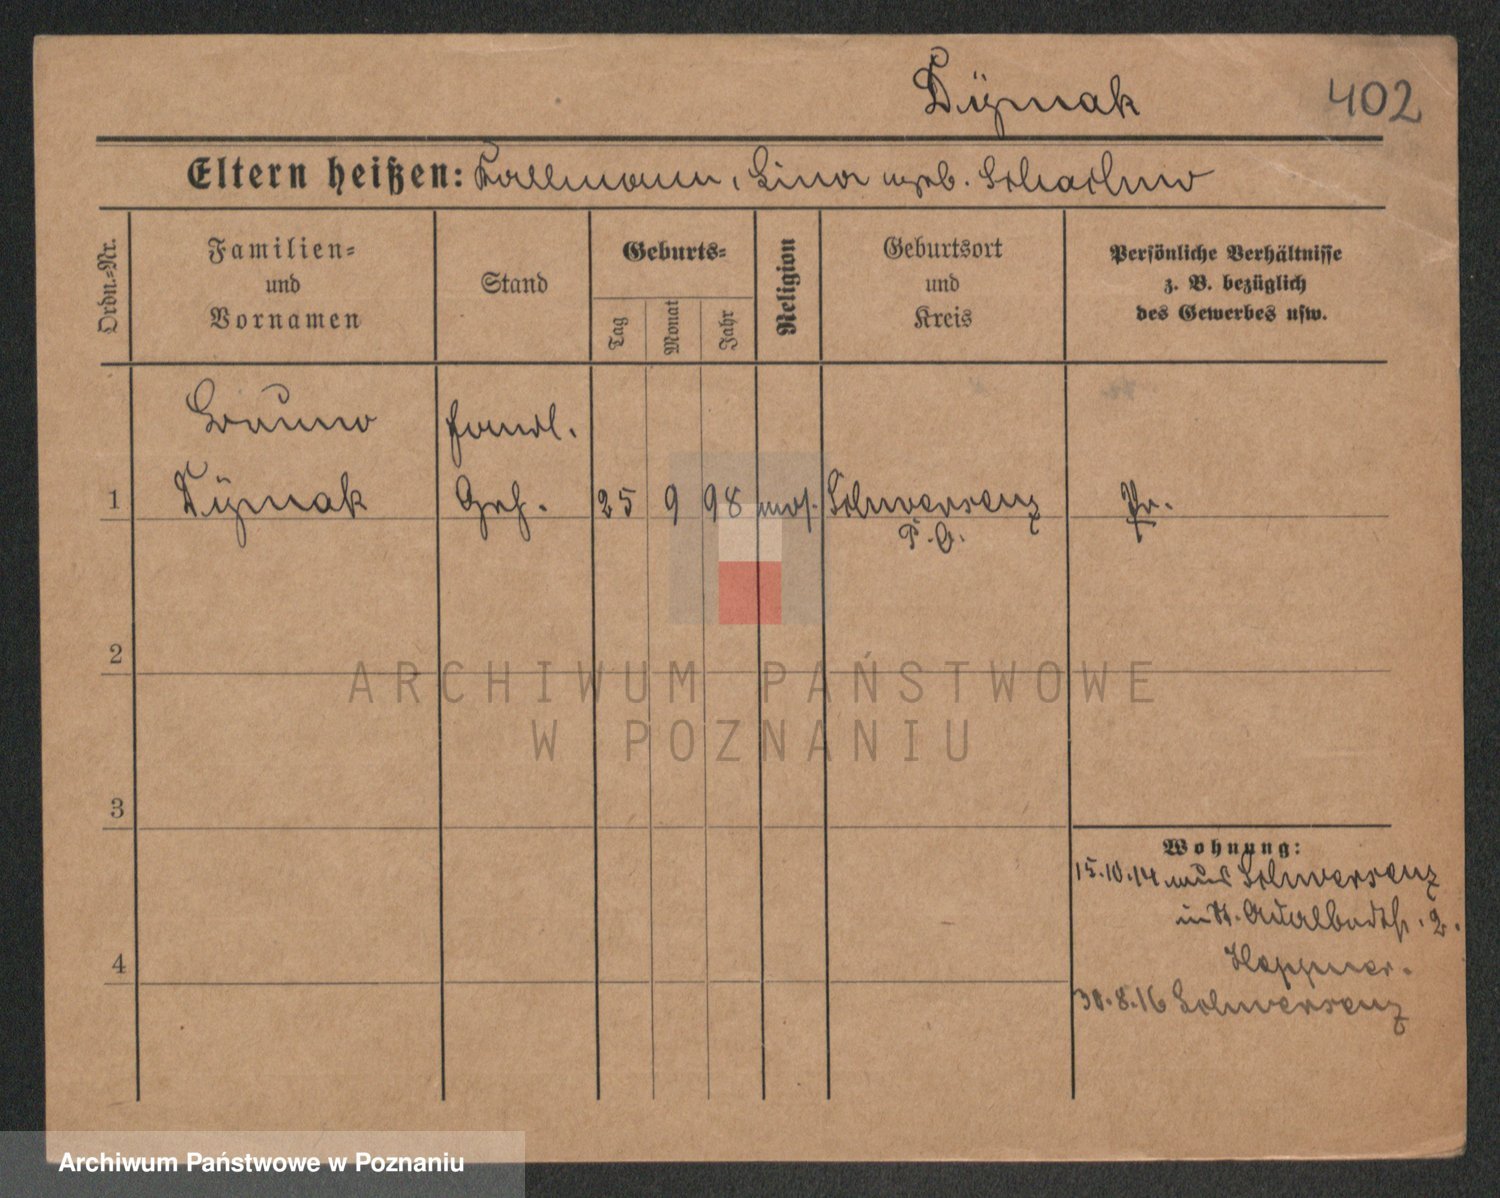 Dyzmak 402
Eltern heißen: Kallmann, Lina geb. Schachno
Ordn.=Nr.
Familien=
und
Vornamen
Stand
Geburts=
Tag
Monat
Jahr
Religion
Geburtsort
und
Kreis
Persönliche Verhältnisse
z. B. bezüglich
des Gewerbes usw.
Bruno Handl.
1 Dyzmak Geh. 25 9 98 mos. Schwersenz Pr.
P. O.
2
3
4
Wohnung:
15.10.14 aus Schwersenz
in St. Adalbertstr. 2.
Heppner.
30.8.16 Schwersenz
ARCHIWUM PAŃSTWOWE
W POZNANIU
Archiwum Państwowe w Poznaniu